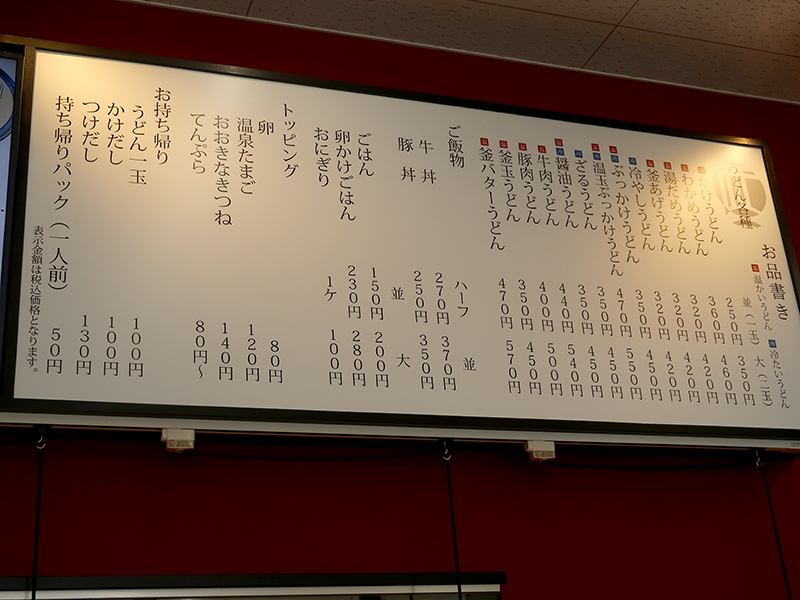 お品書き
温 温かいうどん 冷 冷たいうどん
うどん各種 並(一玉) 大(二玉)
かけうどん 250円 350円
わかめうどん 360円 460円
湯だめうどん 320円 420円
釜あげうどん 320円 420円
冷やしうどん 320円 420円
ぶっかけうどん 350円 450円
温玉ぶっかけうどん 470円 550円
ざるうどん 350円 450円
醤油うどん 350円 450円
牛肉うどん 440円 540円
豚肉うどん 400円 500円
釜玉うどん 350円 450円
釜バターうどん 470円 570円
ご飯物 ハーフ 並
牛丼 270円 370円
豚丼 250円 350円
並 大
ごはん 150円 200円
卵かけごはん 230円 280円
おにぎり 1ケ 100円
トッピング
卵 80円
温泉たまご 120円
おおきなきつね 140円
てんぷら 80円〜
お持ち帰り
うどん一玉 100円
かけだし 100円
つけだし 130円
持ち帰りパック(一人前) 50円
表示金額は税込価格となります。